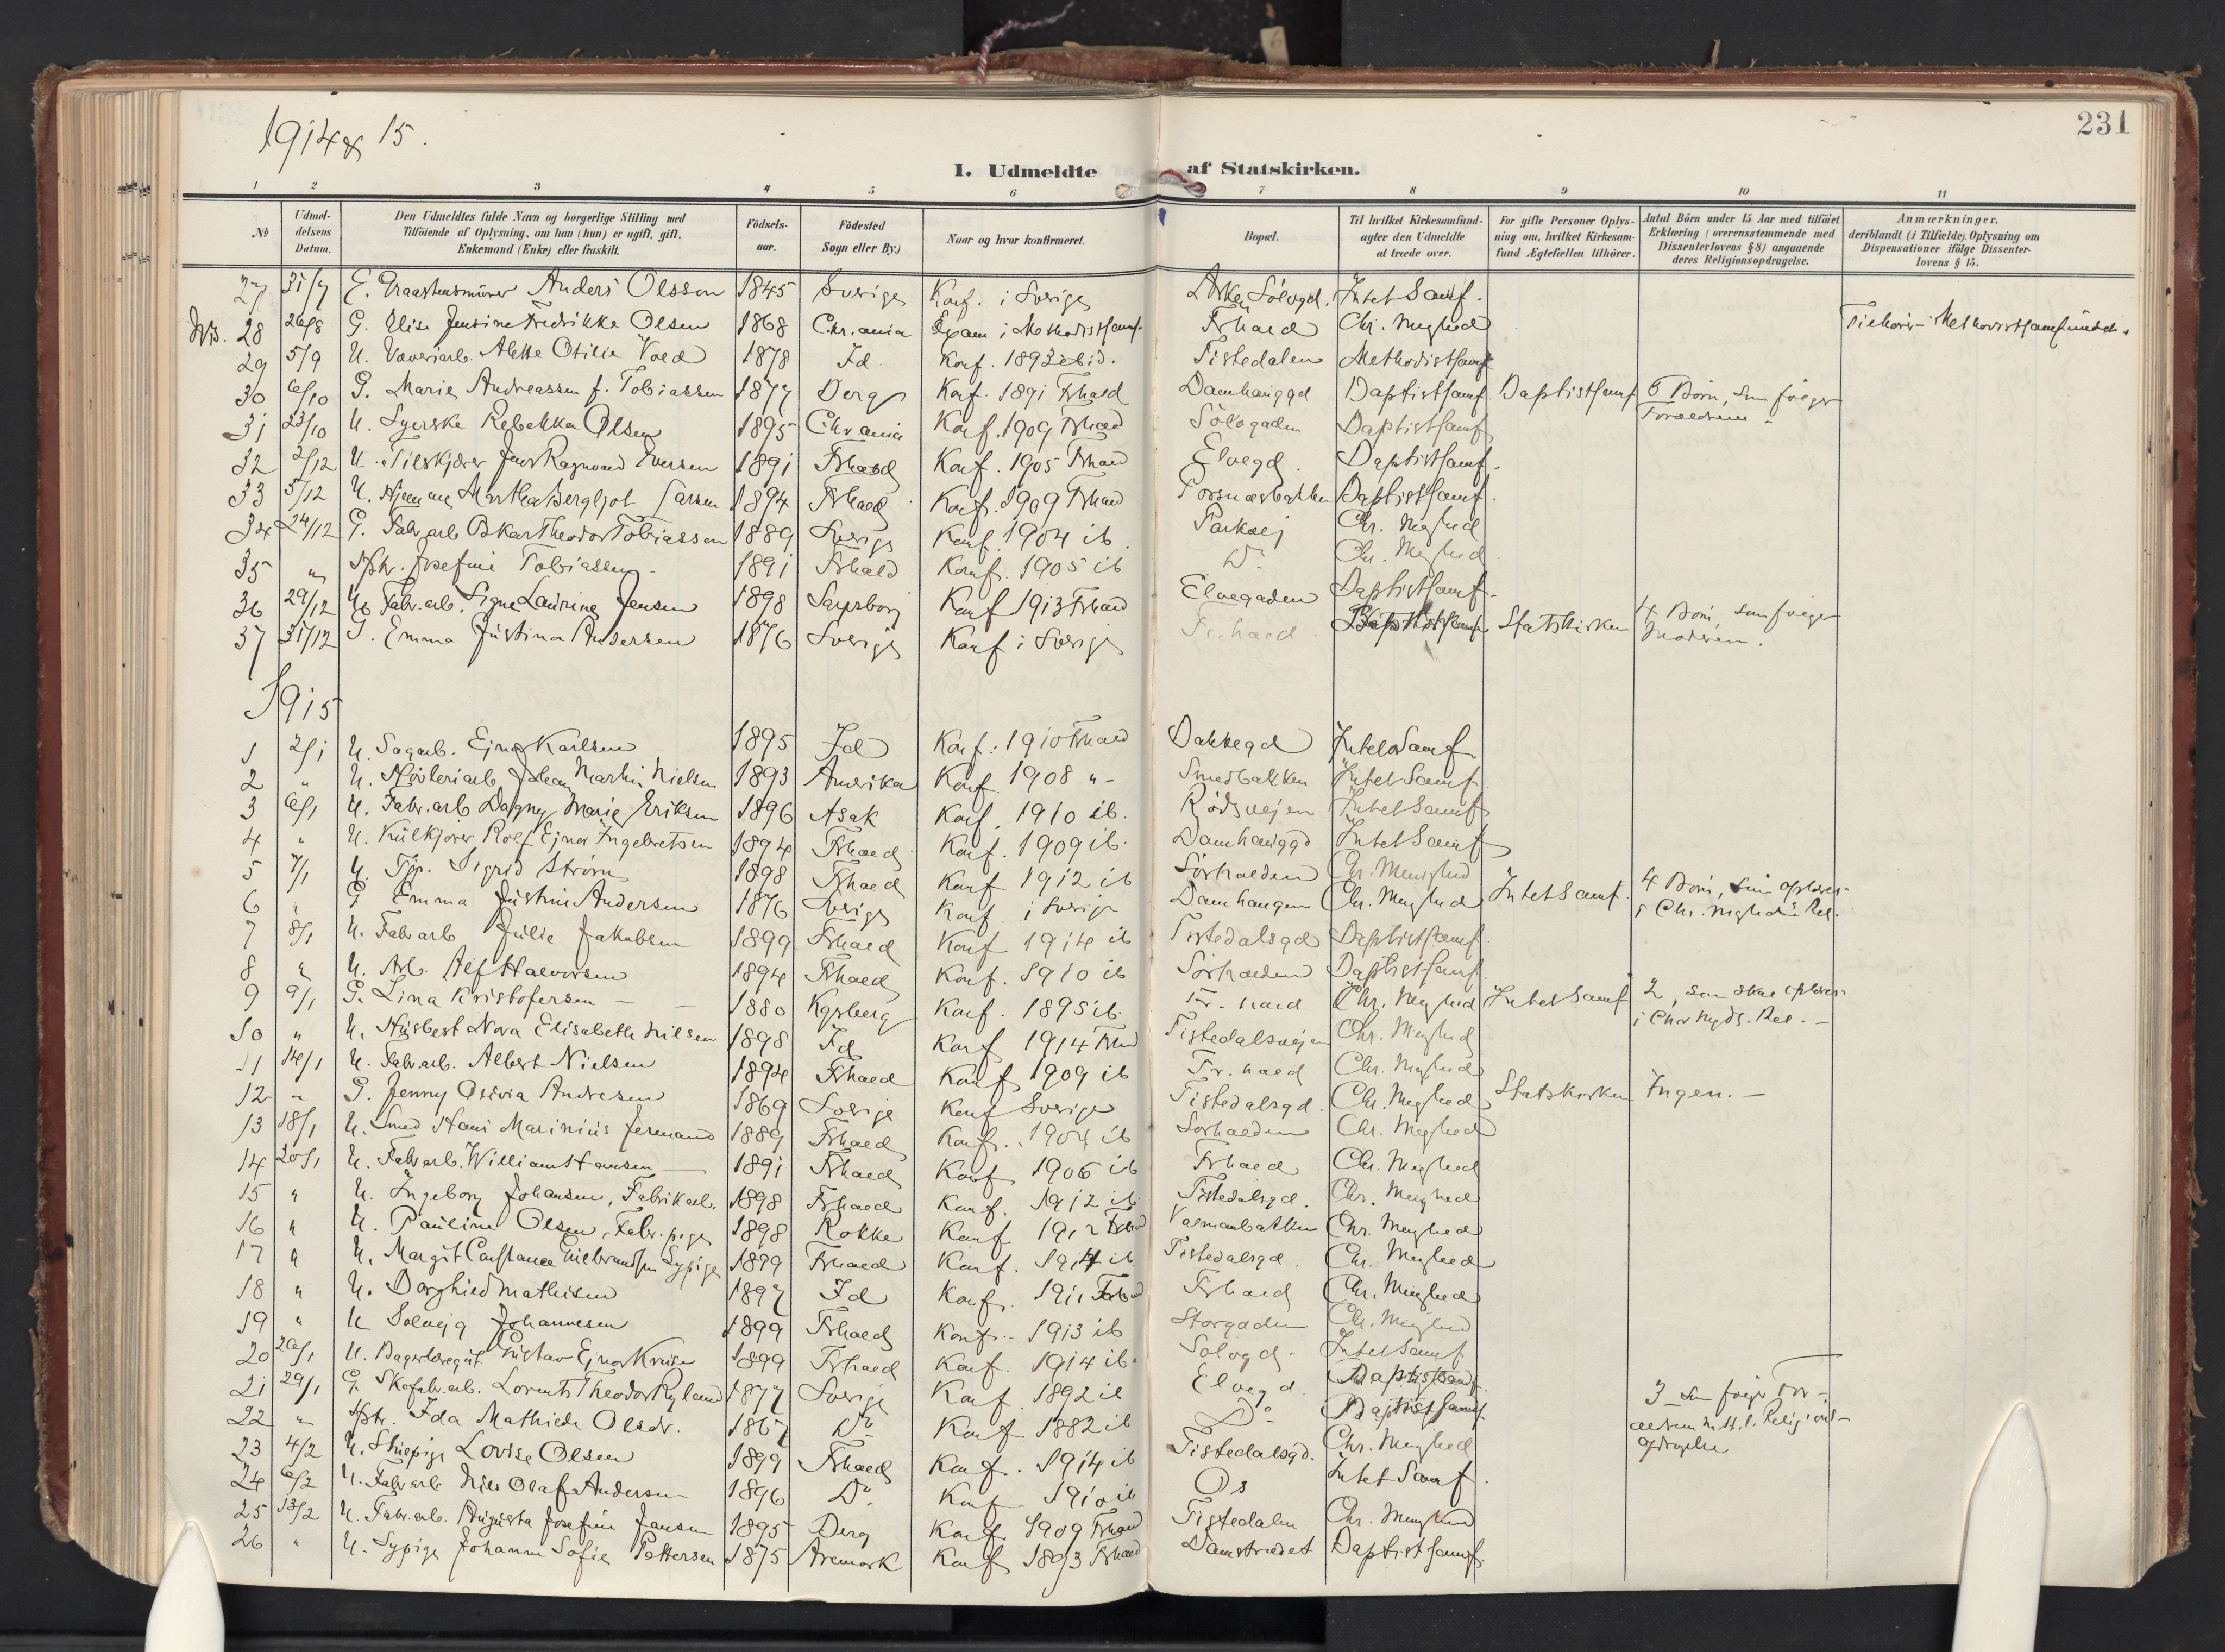 1914 & 15.
231
I. Udmeldte af Statskirken.
1 2 3 4 5 6 7 8 9 10 11
№
Udmeldelsens Datum.
Den Udmeldtes fulde Navn og borgerlige Stilling med Tilföiende af Oplysning, om han (hun) er ugift, gift, Enkemand (Enke) eller fraskilt.
Födselsaar.
Födested Sogn eller By.)
Naar og hvor konfirmeret.
Bopæl.
Til hvilket Kirkesamfund agter den Udmeldte at træde over.
For gifte Personer Oplysning om, hvilket Kirkesamfund Ægtefællen tilhörer.
Antal Börn under 15 Aar med tilföiet Erklæring (overensstemmende med Dissenterlovens § 8) angaaende deres Religionsopdragelse.
Anmærkninger, deriblandt (i Tilfælde) Oplysning om Dispensationer ifölge Dissenterlovens § 15.
27 31/7 E. Anders Olsson 1845 Sverige Konf. i Sverige Intet Samf.
28 26/8 G. Elise Jensine Fredrikke Olsen 1868 Chr.ania Exam i Methodistsamf. Frhald Chr. Meghed Tilhörer Methodistsamfundet.
29 5/9 U. Væveriarb. Alette Otilie Vold 1878 Id Konf. 1893 ibid. Tistedalen Methodistsamf
30 6/10 G. Marie Andreassen f. Tobiassen 1877 Berg Konf. 1891 Frhald Damhauggd Baptistsamf Baptistsamf 5 Börn, som fölger Forældrene
31 23/10 U. Syerske Rebekka Olsen 1895 Chrania Konf. 1909 Frhald Sölvgaden Baptistsamf
32 2/12 U. Jens Ragnvald Iversen 1891 Frhald Konf. 1905 Frhald Elvegd. Baptistsamf.
33 5/12 U. Hjemme Martha Bergljot Larsen 1894 Frhald Konf. 1909 Frhald Porsnæsbakken Baptistsamf.
34 24/12 G. Fabr.arb Oskar Theodor Tobiassen 1889 Sverige Konf. 1904 ib. Parkvej Chr. Meghed
35 " Hstr. Josefine Tobiassen 1891 Frhald Konf. 1905 ib Do Chr. Meghed
36 29/12 U. Fabr.arb. Signe Laurine Jensen 1898 Sarpsborg Konf 1913 Frhald Elvegaden Baptistsamf.
37 31/12 G. Emma Justina Andersen 1876 Sverige Konf i Sverige Fr.hald Baptistsamf. Statskirken 4 Börn, som fölger Moderen.
1915
1 2/1 U. Sagarb. Ejnar Karlsen 1895 Id Konf. 1910 Frhald Bakkegd Intet Samf
2 " U. Høvleriarb Johan Martin Nielsen 1893 Amerika Konf. 1908 "- Smedbakken Intet Samf
3 6/1 U. Fabr.arb Dagny Marie Eriksen 1896 Asak Konf. 1910 ib. Rødsvejen Intet Samf
4 " U. Kulkjører Rolf Ejnar Ingebretsen 1894 Frhald Konf. 1909 ib. Damhauggd Intet Samf
5 7/1 U. Tjp. Sigrid Strøm 1898 Frhald Konf 1912 ib Sørhalden Chr. Menighed
6 " G Emma Justine Andersen 1876 Sverige Konf i Sverige Damhaugen Chr. Meghed Intet Samf. 4 Börn, som opdrages i Chr. Mgheds Rel.
7 8/1 U. Fabr arb Julie Jakobsen 1899 Frhald Konf 1914 ib Tistedalsgd Baptistsamf
8 " U. Arb. Alf Halvorsen 1894 Frhald Konf. 1910 ib Sørhalden Baptistsamf
9 9/1 G. Lina Kristofersen 1880 Kgsberg Konf. 1895 ib. Fr.hald Chr. Meghed Intet Samf 2, som skal opdrages i Chr Mgds. Rel.
10 " U. Husbest Nora Elisabeth Nilsen 1898 Id Konf 1914 Frhald Tistedalsvejen Chr. Meghed
11 14/1 U. Fabr.arb. Albert Nielsen 1894 Frhald Konf 1909 ib Fr.hald Chr. Meghed
12 " G. Jenny Olivia Andresen 1869 Sverige Konf Sverige Tistedalsgd. Chr. Meghed Statskirken Ingen.
13 18/1 U. Smed Hans Marinius 1889 Frhald Konf. 1904 ib Sørhalden Chr. Meghed
14 20/1 U. Fabr arb. William Hansen 1891 Frhald Konf 1906 ib Frhald Chr. Meghed
15 " U. Ingeborg Johansen, Fabrikarb. 1898 Frhald Konf. 1912 ib. Tistedalsgd. Chr. Meghed
16 " U. Pauline Olsen, Fabr.pige 1898 Rokke Konf 1912 Frhald Chr. Meghed
17 " U. Margit Constance Sypige 1899 Frhald Konf. 1914 ib. Tistedalsgd. Chr. Meghed
18 " U. Borghild Mathisen 1897 Id Konf. 1911 Frhald Frhald Chr. Meghed
19 " U Solveig Johannesen 1899 Frhald Konf. 1913 ib Storgaden Chr. Meghed
20 26/1 U. Gustav Ejnar Kruse 1899 Frhald Konf. 1914 ib. Solvgd. Intet Samf
21 29/1 G. Skofabr.arb. Lorents Theodor Ryland 1877 Sverige Konf. 1892 ib Elvegd. Baptistsamf 3 som følger Forældrene m. H. t. Religionsopdragelse
22 " Hstr. Ida Mathilde Olsdr. 1867 Do Konf 1882 ib Do Baptistsamf
23 4/2 U. Lovise Olsen 1899 Frhald Konf. 1914 ib Tistedalsgd. Chr. Meghed
24 6/2 U. Fabr arb Nils Olaf Andersen 1896 Do Konf. 1910 ib Os Intet Samf.
25 13/2 U. Fabr.arb. Augusta Josefine Jansen 1895 Berg Konf. 1909 Frhald Tistedalen Chr. Meghed
26 " U. Sypige Johanne Sofie Pettersen 1875 Aremark Konf 1893 Frhald Damstrædet Baptistsamf.